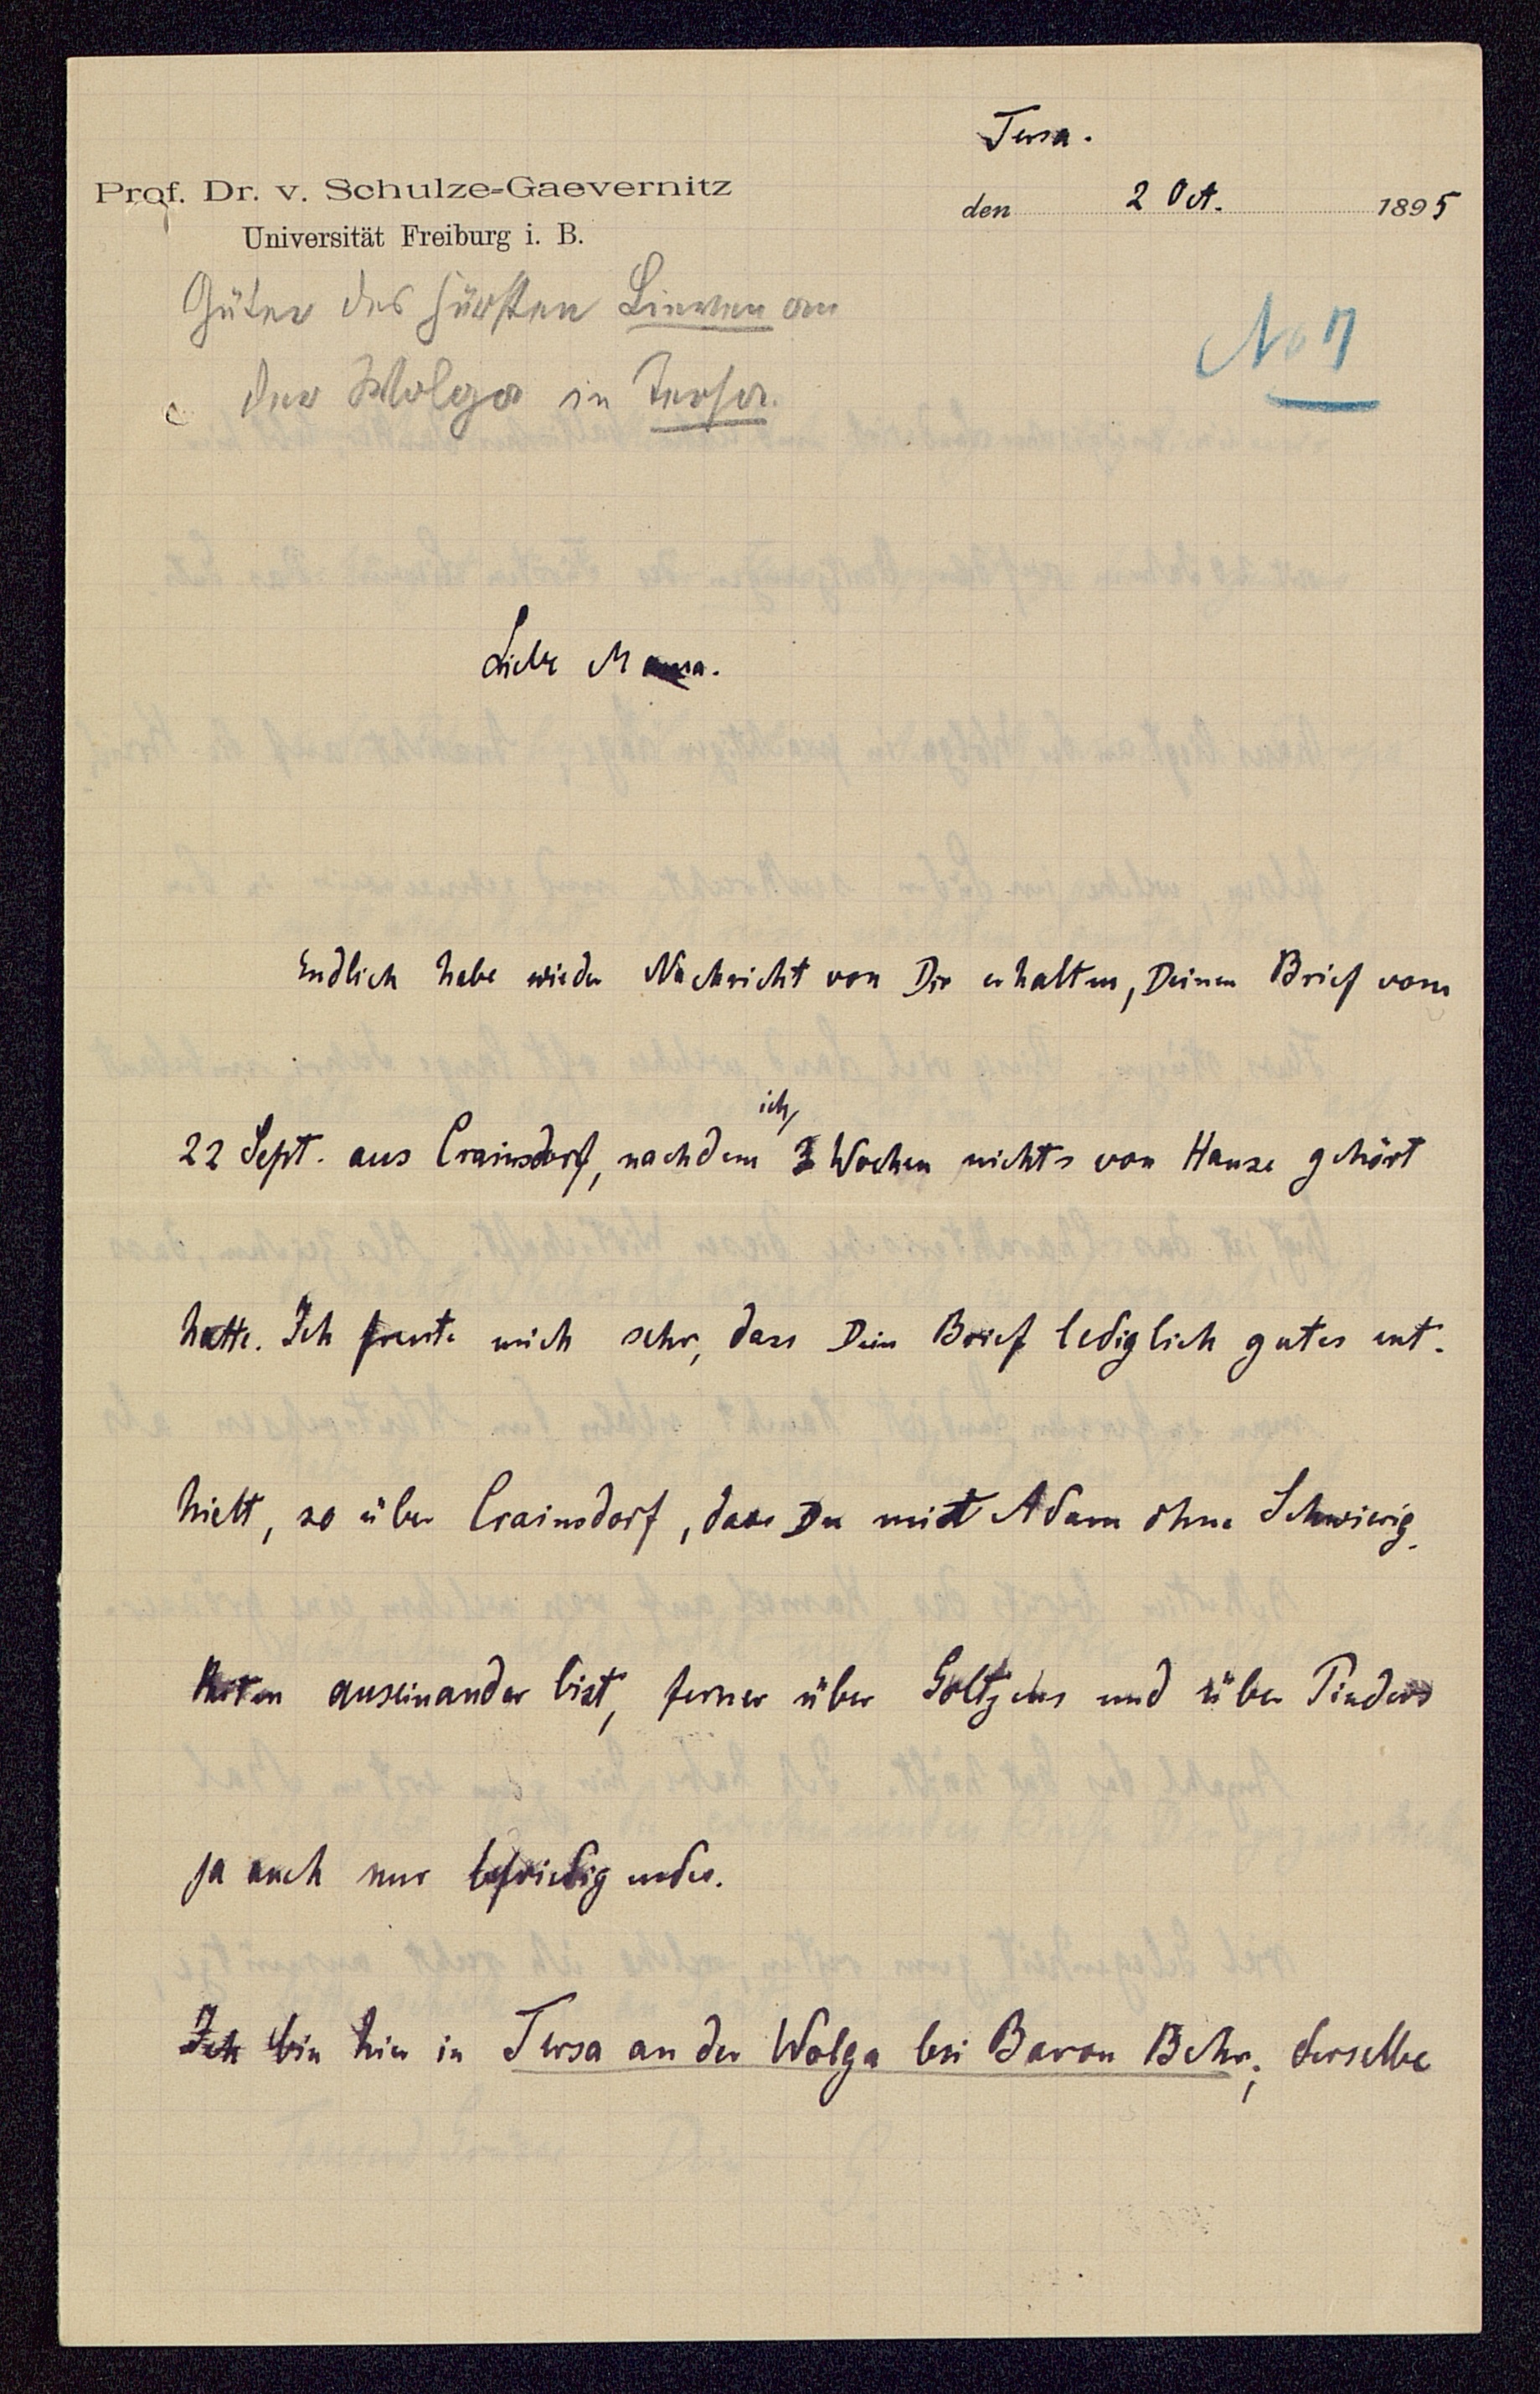 Tersa.
Prof. Dr. v. Schulze-Gaevernitz
den 2 Oct. 1895
Universität Freiburg i. B.
Güter des Fürsten Liewen an
No 7
der Wolga in Tersa.
Liebe Mama.
Endlich habe wieder Nachricht von Dir erhalten, Deinen Brief vom
ich
22 Sept. aus Crainsdorf, nachdem 3 Wochen nichts von Hause gehört
hatte. Ich freute mich sehr, dass Dein Brief lediglich gutes ent-
hielt, so über Crainsdorf, dass Du mit Adam ohne Schwierig-
keiten auseinander bist, ferner über Goltzens und über Pinders
ja auch nur befriedigendes.
Ich bin hier in Tersa an der Wolga bei Baron Behr; derselbe